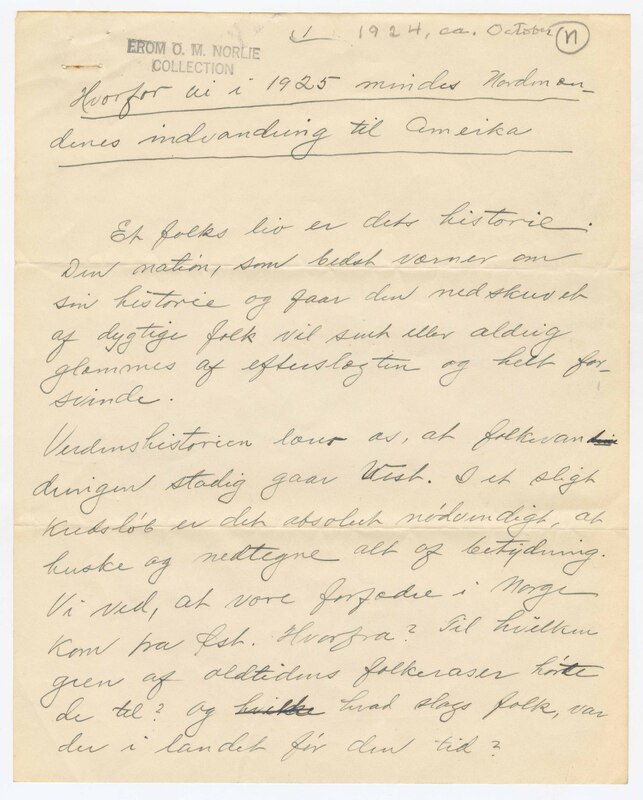 1
1924, ca. October
N
FROM O. M. NORLIE
COLLECTION
Hvorfor vi i 1925 mindes Nordmæn-
denes indvandring til Amerika
Et folks liv er dets historie.
Den nation, som bedst værner om
sin historie og faar den nedskrevet
af dygtige folk vil sent eller aldrig
glemmes af efterslægten og helt for-
svinde.
Verdenshistorien lærer os, at folkevan
dringen stadig gaar Vest. I et sligt
kredsløb er det absolut nødvendigt, at
huske og nedtegne alt af betydning.
Vi ved, at vore forfædre i Norge
kom fra Øst. Hvorfra? Til hvilken
gren af oldtidens folkeraser hørte
de til? og hvilke hvad slags folk, var
der i landet før den tid?